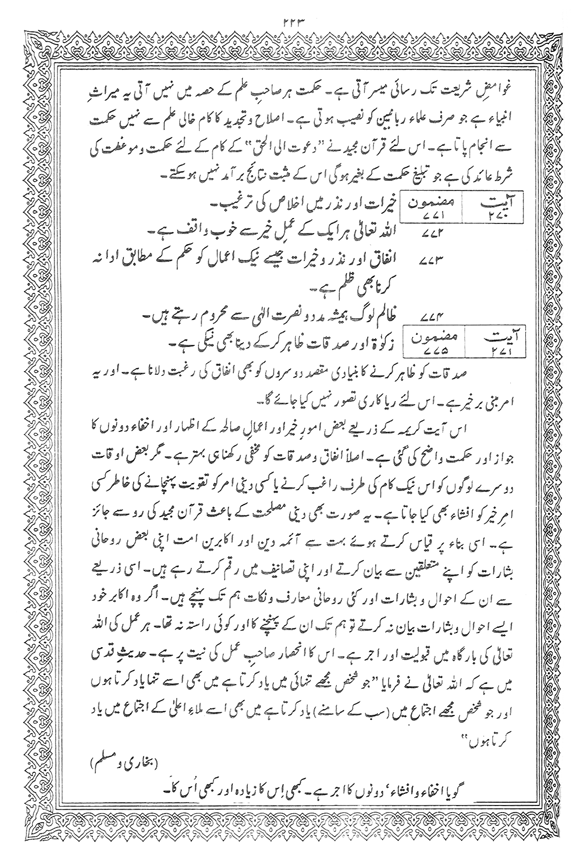 ۲۲۳
غوامضِ شریعت تک رسائی میسر آتی ہے۔ حکمت ہر صاحبِ علم کے حصہ میں نہیں آتی یہ میراثِ
انبیاء ہے جو صرف علماء ربانیین کو نصیب ہوتی ہے۔ اصلاح و تجدید کا کام خالی علم سے نہیں حکمت
سے انجام پاتا ہے۔ اس لئے قرآن مجید نے ”دعوت الی الحق“ کے کام کے لئے حکمت و موعظت کی
شرط عائد کی ہے جو تبلیغ حکمت کے بغیر ہوگی اس کے مثبت نتائج برآمد نہیں ہو سکتے۔
آیت ۲۷۰ مضمون ۷۷۱ خیرات اور نذر میں اخلاص کی ترغیب۔
۷۷۲ اللہ تعالیٰ ہر ایک کے عمل خیر سے خوب واقف ہے۔
۷۷۳ انفاق اور نذر و خیرات جیسے نیک اعمال کو حکم کے مطابق ادا نہ
کرنا بھی ظلم ہے۔
۷۷۴ ظالم لوگ ہمیشہ مدد و نصرت الٰہی سے محروم رہتے ہیں۔
آیت ۲۷۱ مضمون ۷۷۵ زکوٰۃ اور صدقات ظاہر کر کے دینا بھی نیکی ہے۔
صدقات کو ظاہر کرنے کا بنیادی مقصد دوسروں کو بھی انفاق کی رغبت دلانا ہے۔ اور یہ
امر مبنی بر خیر ہے۔ اس لئے ریاکاری تصور نہیں کیا جائے گا۔
اس آیت کریمہ کے ذریعے بعض امور خیر اور اعمال صالحہ کے اظہار اور اخفاء دونوں کا
جواز اور حکمت واضح کی گئی ہے۔ اصلاً انفاق و صدقات کو مخفی رکھنا ہی بہتر ہے۔ مگر بعض اوقات
دوسرے لوگوں کو اس نیک کام کی طرف راغب کرنے یا کسی دینی امر کو تقویت پہنچانے کی خاطر کسی
امر خیر کو افشاء بھی کیا جاتا ہے۔ یہ صورت بھی دینی مصلحت کے باعث قرآن مجید کی رو سے جائز
ہے۔ اسی بناء پر قیاس کرتے ہوئے بہت سے آئمہ دین اور اکابرین امت اپنی بعض روحانی
بشارات کو اپنے متعلقین سے بیان کرتے اور اپنی تصانیف میں رقم کرتے رہے ہیں۔ اسی ذریعے
سے ان کے احوال و بشارات اور کئی روحانی معارف و نکات ہم تک پہنچے ہیں۔ اگر وہ اکابر خود
ایسے احوال و بشارات بیان نہ کرتے تو ہم تک ان کے پہنچنے کا اور کوئی راستہ نہ تھا۔ ہر عمل کی اللہ
تعالیٰ کی بارگاہ میں قبولیت اور اجر ہے۔ اس کا انحصار صاحبِ عمل کی نیت پر ہے۔ حدیثِ قدسی
میں ہے کہ اللہ تعالیٰ نے فرمایا ”جو شخص مجھے تنہائی میں یاد کرتا ہے میں بھی اسے تنہا یاد کرتا ہوں
اور جو شخص مجھے اجتماع میں (سب کے سامنے) یاد کرتا ہے میں بھی اسے ملاءِ اعلیٰ کے اجتماع میں یاد
کرتا ہوں“
(بخاری و مسلم)
گویا اخفاء و افشاء‘ دونوں کا اجر ہے۔ کبھی اِس کا زیادہ اور کبھی اُس کا۔